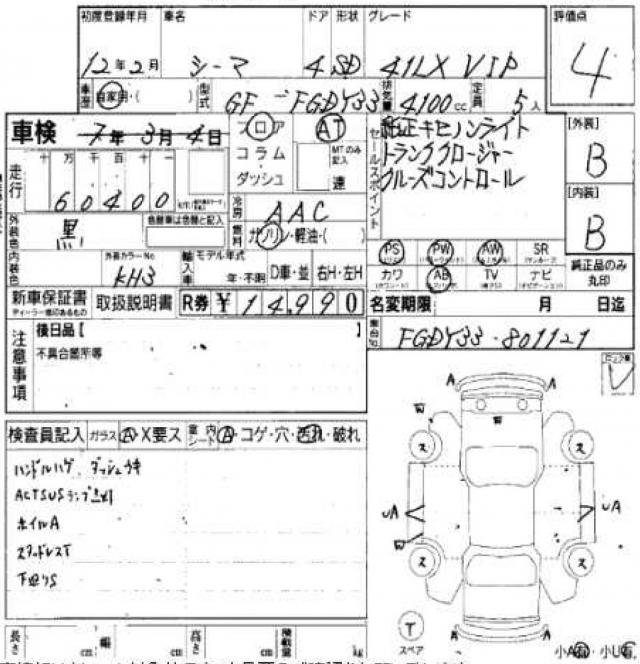 初度登録年月 車名 ドア 形状 グレード 評価点
12年2月 シーマ 4 SD 41LX VIP 4
車歴 自家用・( ) 型式 GF-FGDY33 排気量 4100cc 定員 5人
車検 7年3月4日 フロア AT セールスポイント 純正キセノンライト [外装]
コラム MTのみ記入 トランククロージャー B
走行 十万千百十一 ダッシュ 速 クルーズコントロール
60400 冷房 AAC [内装]
外装色 黒 色替車は元色と記入 燃料 ガソリン・軽油・( ) B
内装色 外装カラーNo KH3 輸入車 モデル年式 年・不明 D車・並 右H・左H
PS PW AW SR 純正品のみ丸印
カワ AB TV ナビ
新車保証書 取扱説明書 R券 ¥14,990 名変期限 月 日迄
ディーラー印のあるもの
車台No. FGDY33-801121
注意事項 後日品【
不具合箇所等
検査員記入 ガラス A・X要ス 室内シート A・コゲ・穴・汚れ・破れ
ハンドルハゲ、ダッシュキ
ACTSUSランプ点灯
ホイルA
スタッドレスT
下廻りS
A A
W
W
ス ス
UA UA
W
ス ス
T
スペア
A A
長さ cm 幅 cm 高さ cm 積載量 kg 小A有・小U有